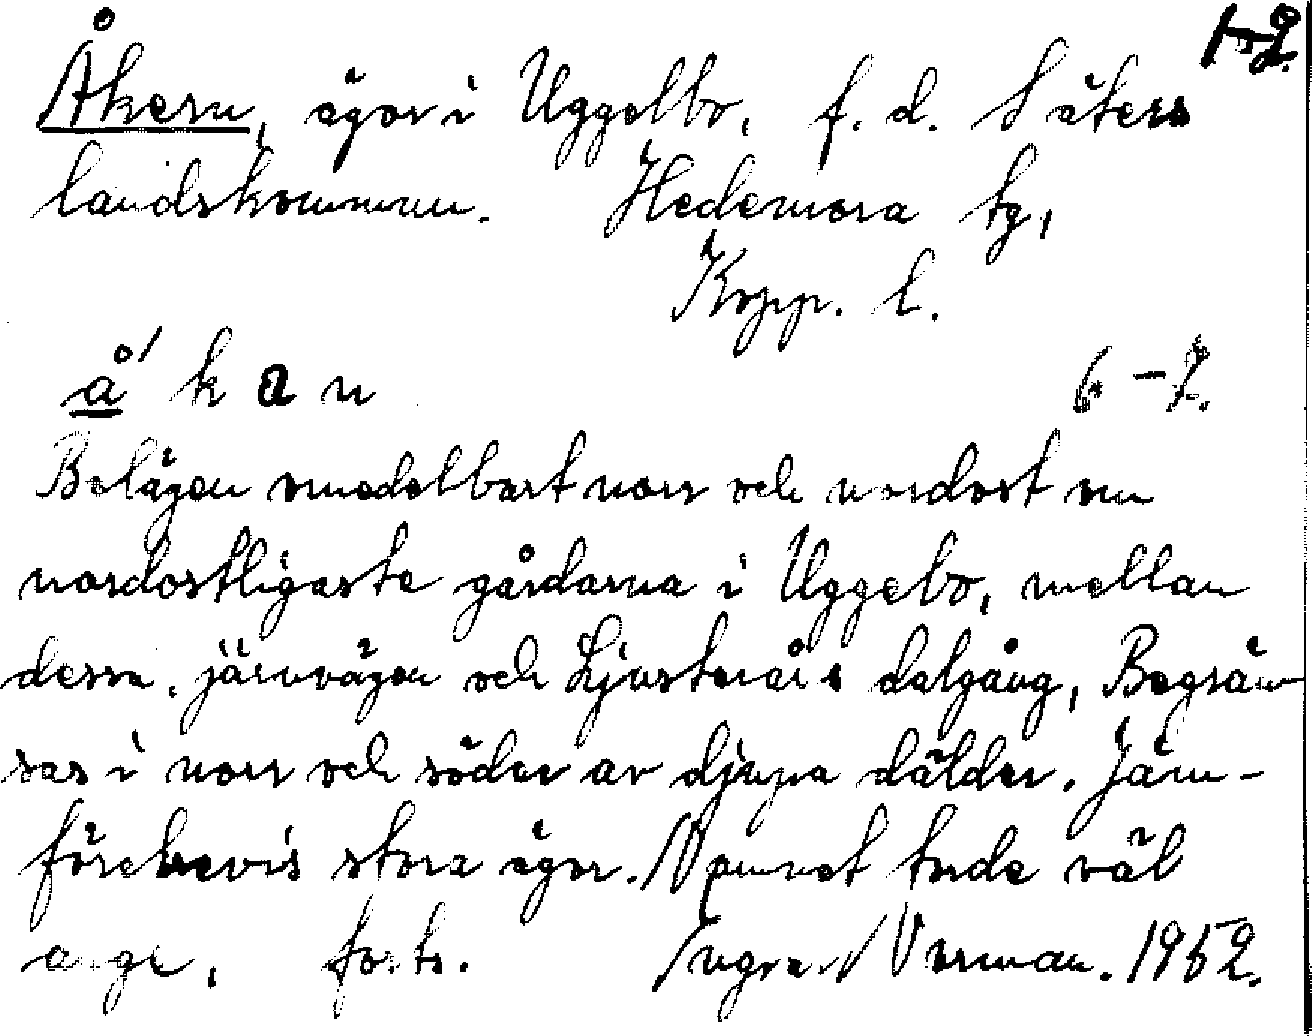 1-2.
Åkern, ägor i Uggelbo, f. d. Säters
landskommun. Hedemora tg,
Kopp. l.
å' k a n 6-7.
Belägen omedelbart norr och nordost om
nordostligaste gårdarna i Uggebo, mellan
dessa, järnvägen och Ljusterås dalgång, Begrän
sas i norr och söder av djupa dälder. Jäm-
förelsevis stora ägor. Namnet torde väl
ange, forts. Ingvar Norman. 1952.